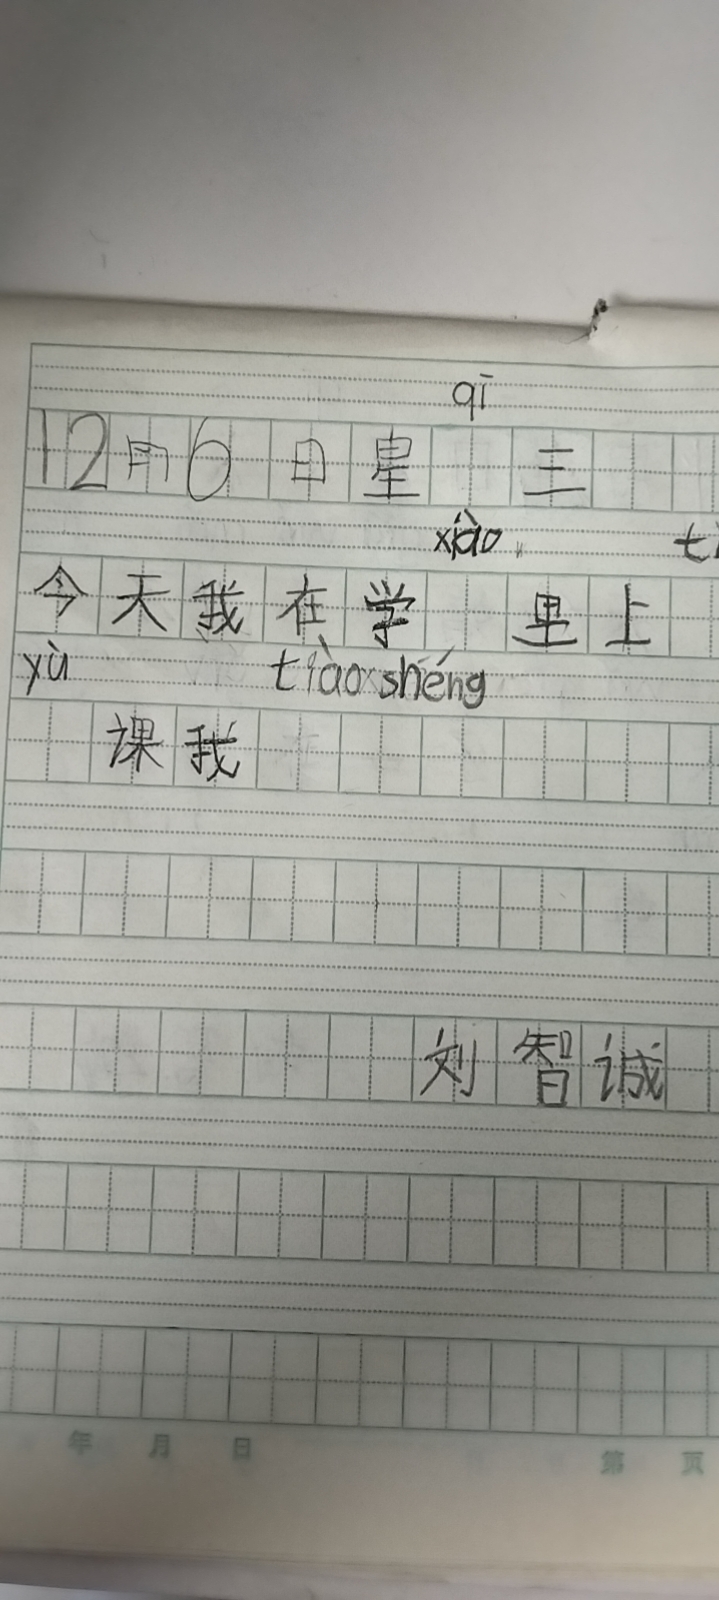 qī
12月6日星 三
xiào tǐ
今天我在学 里上
yù tiào shéng
课我
刘智诚
年 月 日 第 页